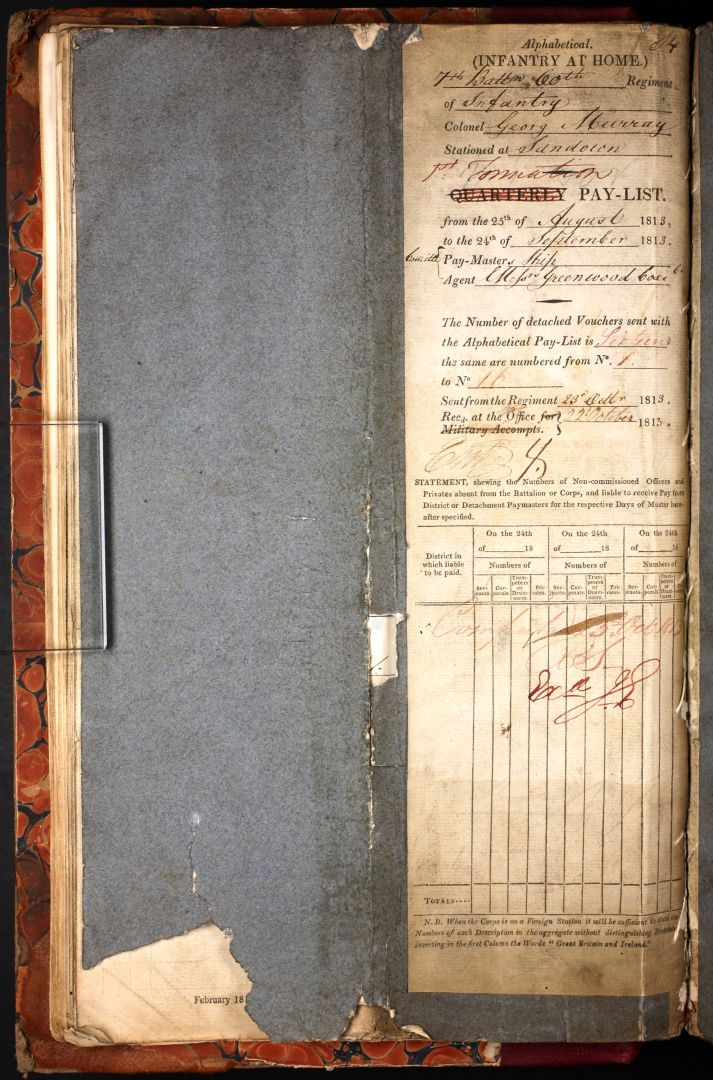 Alphabetical.
(INFANTRY AT HOME.)
7th Battn 60th Regiment
of Infantry
Colonel Georg Murray
Stationed at Sandown
1st Formation
QUARTERLY PAY-LIST.
from the 25th of August 1813,
to the 24th of September 1813.
Pay-Master Ship
Agent Messrs Greenwood Cox & Co
The Number of detached Vouchers sent with
the Alphabetical Pay-List is Sixteen;
the same are numbered from No. 1.
to No 16
Sent from the Regiment 23d Octbr 1813.
Rec3. at the Office for 22 October 1813.
Military Accompts.
STATEMENT, shewing the Numbers of Non-commissioned Officers and
Privates absent from the Battalion or Corps, and liable to receive Pay from
District or Detachment Paymasters for the respective Days of Muster here-
after specified.
District in which liable to be paid.
On the 24th of 18 On the 24th of 18 On the 24th of 18
Numbers of Numbers of Numbers of
Ser-geants. Cor-porals. Trum-peters or Drum-mers. Pri-vates. Ser-geants. Cor-porals. Trum-peters or Drum-mers. Pri-vates. Ser-geants. Cor-porals. Trum-peters or Drum-mers.
Exd
TOTALS----
N.B. When the Corps is on a Foreign Station it will be sufficient to state the
Numbers of each Description in the aggregate without distinguishing Districts
inserting in the first Column the Words "Great Britain and Ireland."
February 18